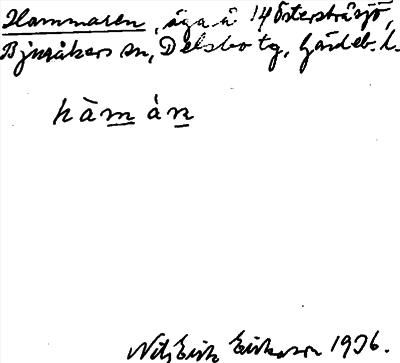 Hammaren, äga å 14 Östersträsjö,
Bjuråkers sn, Delsbo tg, Gävleb. l.
hàmán
Nils Erik Eriksson 1936.